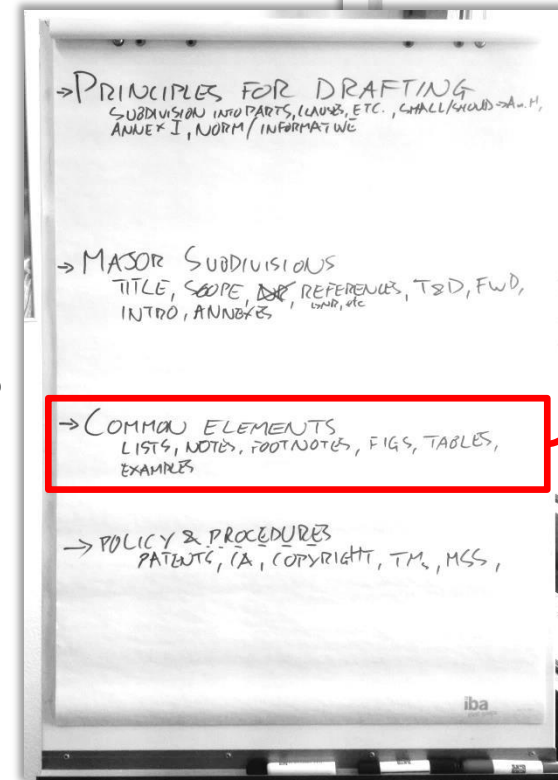 → PRINCIPLES FOR DRAFTING
SUBDIVISION INTO PARTS, CLAUSES, ETC., SHALL/SHOULD → Ann. H,
ANNEX I, NORM/INFORMATIVE
→ MAJOR SUBDIVISIONS
TITLE, SCOPE, REFERENCES, T&D, FWD,
INTRO, ANNEXES, etc
→ COMMON ELEMENTS
LISTS, NOTES, FOOTNOTES, FIGS, TABLES,
EXAMPLES
→ POLICY & PROCEDURES
PATENTS, CA, COPYRIGHT, TMs, MSS,
iba